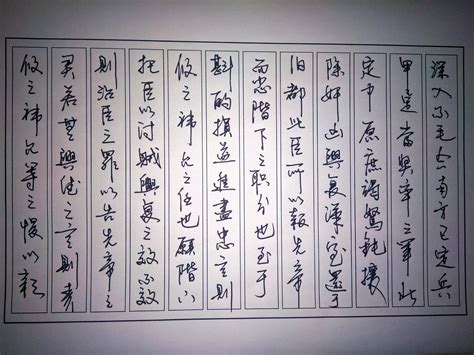 深入不毛今南方已定兵
甲足當奖率三军北
定中原庶竭駑鈍攘
除奸凶興复漢室還于
旧都此臣所以報先帝
而忠陛下之职分也至于
斟酌損益進盡忠言則
攸之祎允之任也願陛下
托臣以讨贼興复之效不效
則治臣之罪以告先帝之
灵若無興德之言則責
攸之祎允等之慢以彰